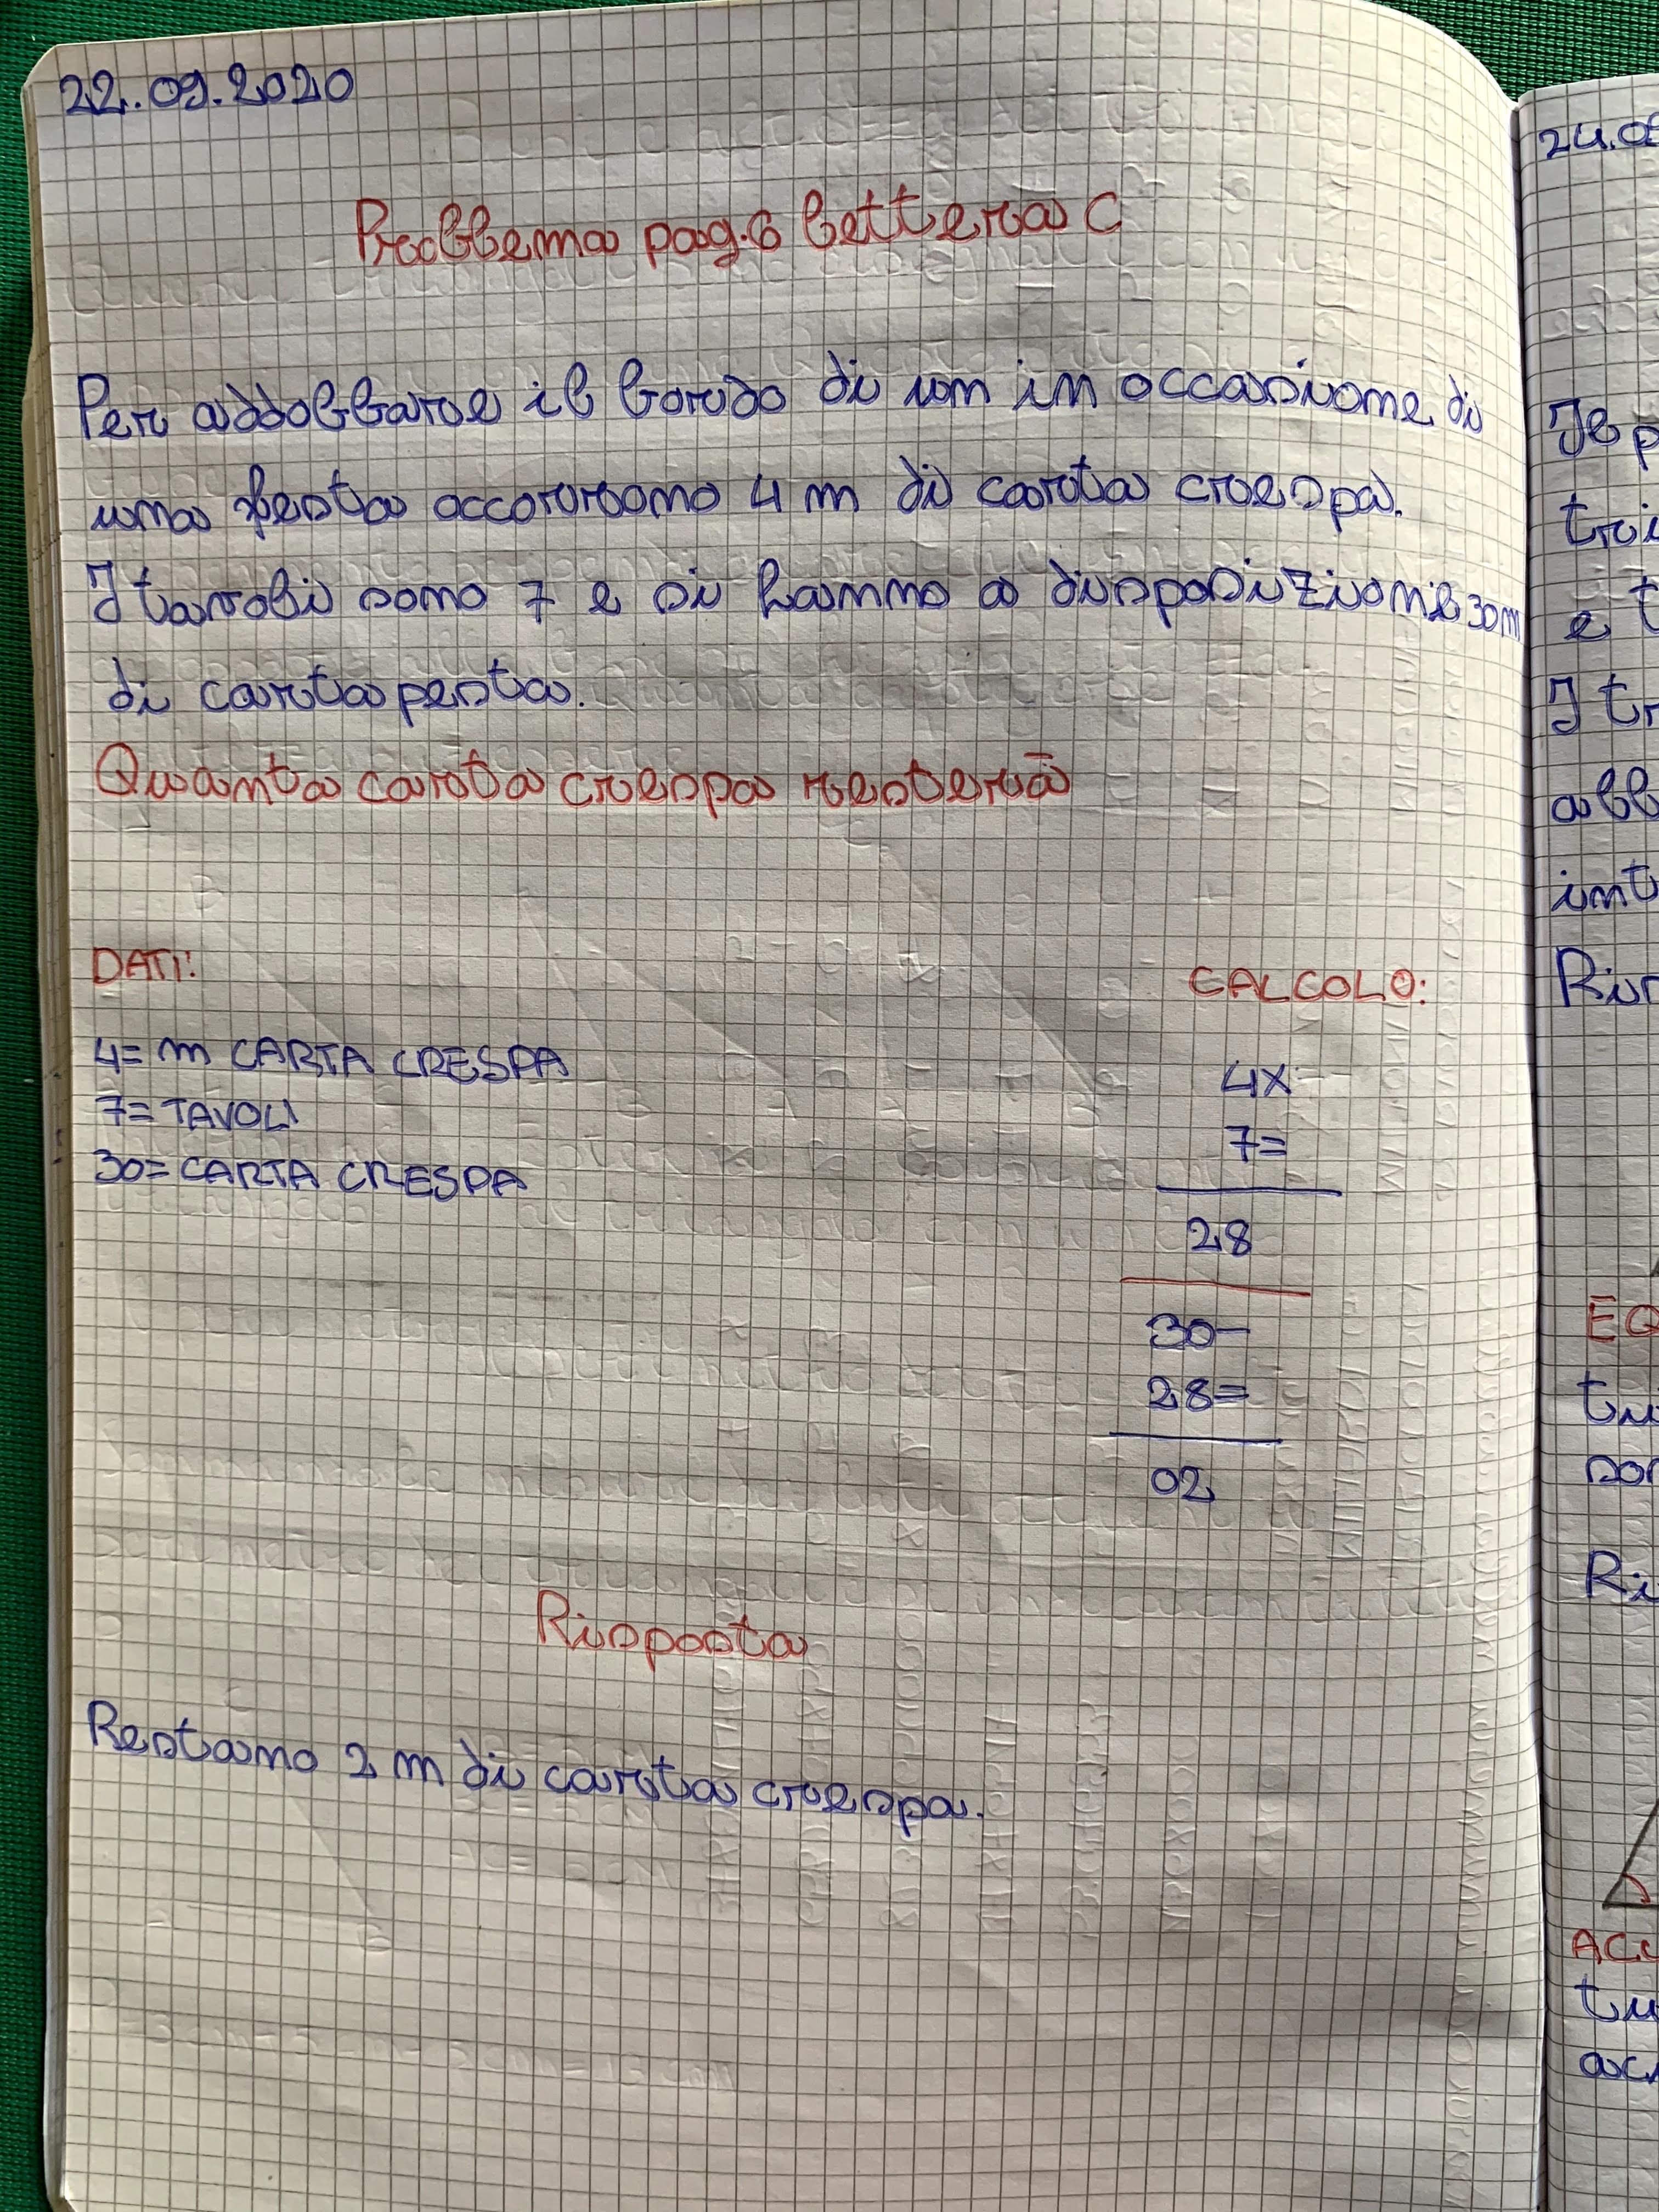 22.09.2020
Problema pag.6 lettera C
Per addobbare il bordo di un in occasione di
una festa occorrono 4 m di carta crespa.
I tavoli sono 7 e si hanno a disposizione 30m
di carta pesta.
Quanta carta crespa resterà
DATI:
4= m CARTA CRESPA
7= TAVOLI
30= CARTA CRESPA
CALCOLO:
4x
7=
28
30-
28=
02
Risposta
Restano 2 m di carta crespa.
24.0
e
I tr